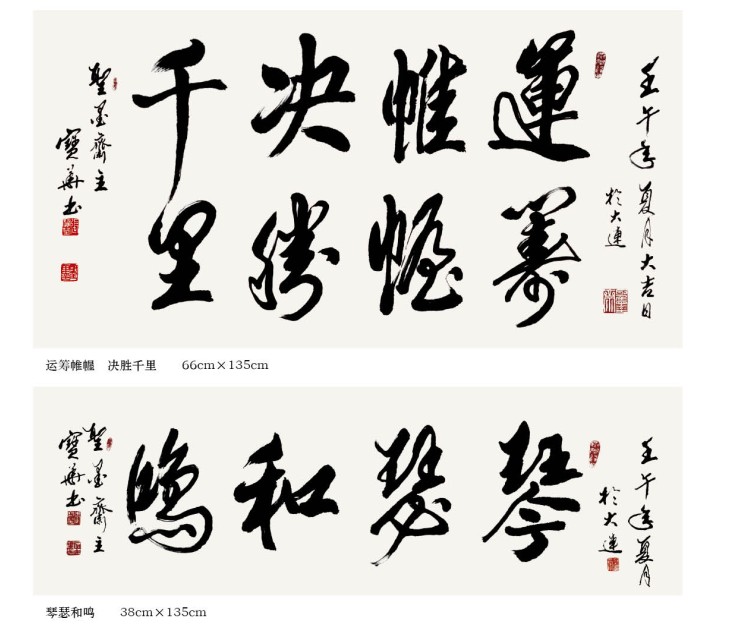 壬午年夏月大吉日
於大連
運籌
帷幄
决勝
千里
聖墨齋主
寶華书
运筹帷幄 决胜千里 66cm×135cm
壬午年夏月
於大連
琴
瑟
和
鳴
聖墨齋主
寶華书
琴瑟和鸣 38cm×135cm